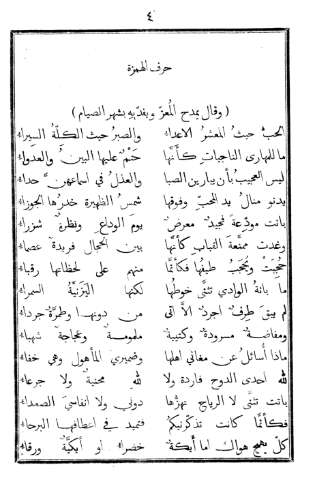 ٤
حرف الهمزة
(وقال يمدح المُعزّ ويفدّيه بشهر الصيام)
الحبّ حيثُ المعشرُ الاعداء والصبرُ حيث الكِلّةُ السِيَراء
ما للمهارى الناجيات كأنّها حَتْمٌ عليها البينُ والعدواء
ليس العجيبُ بأن يبارين الصبا والعذلُ في اسماعهنّ حداء
يدنو منالُ يد المحبّ وفوقها شمسُ الظهيرة خدرُها الجوزاء
بانت مودّعةً فجيدٌ معرضٌ يومَ الوداع ونظرةٌ شزراء
وغدت ممنّعةَ القباب كأنّها بين الحجال فريدةٌ عصماء
حُجبتْ ويُحجَبُ طيفُها فكأنّما منهم على لحظاتها رقباء
ما بانةُ الوادي تثنّى خوطُها لكنّها اليَزَنيّةُ السمراء
لم يبقَ طِرفٌ اجردٌ الّا اتى من دونها وطمرّةٌ جرداء
ومفاضةٌ مسرودةٌ وكتيبةٌ ملمومةٌ وعجاجةٌ شهباء
ماذا أُسائلُ عن مغاني اهلها وضميري المأهول وهي خفاء
لله احدى الدوح فاردة ولا لله محنيةٌ ولا جرعاء
بانت تثنّى لا الرياح تهزّها دوني ولا انفاسيَ الصعداء
فكأنّما كانت تذكّرنيكم فتميد في اعطافها البرحاء
كلّ يهيج هواك اما أيكةٌ خضراء او أيكيّةٌ ورقاء